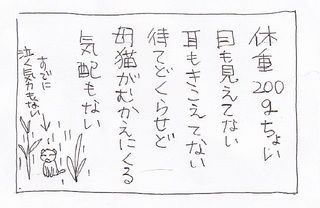 体重200gちょい
目も見えてない
耳もきこえてない
待てどくらせど
母猫がむかえにくる
気配もない
すでに
泣く気力もない